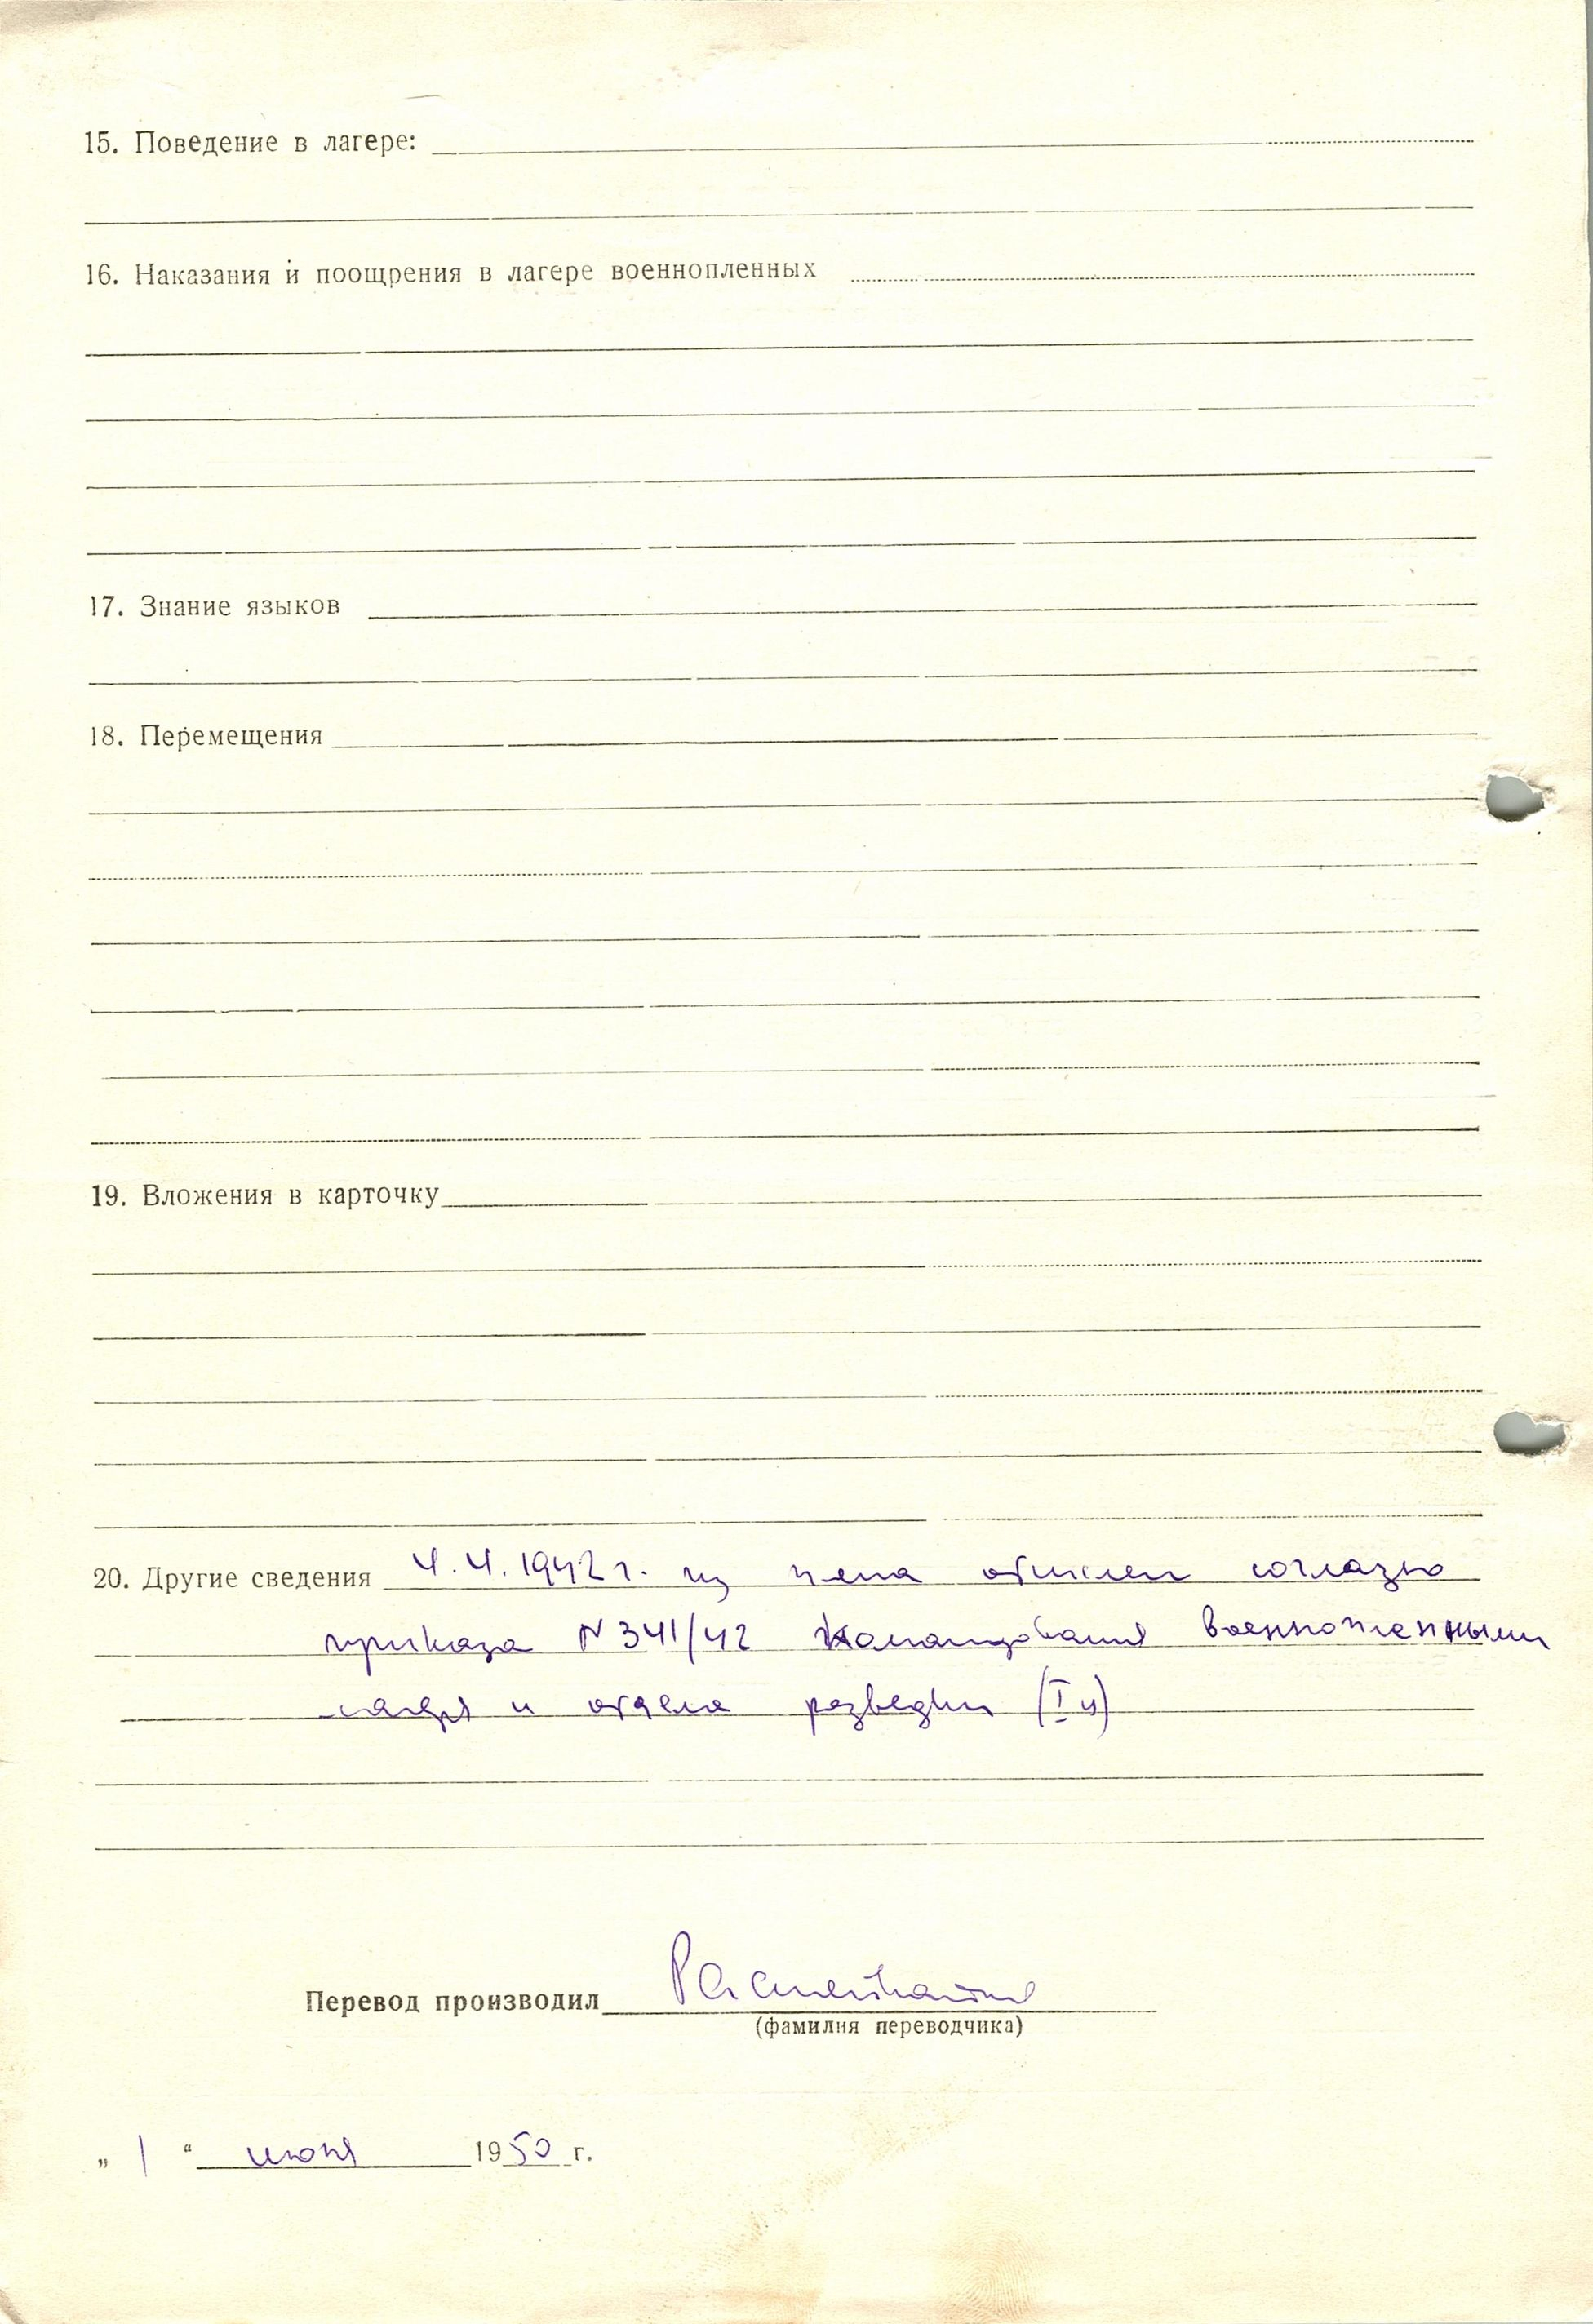 15. Поведение в лагере:
16. Наказания и поощрения в лагере военнопленных
17. Знание языков
18. Перемещения
19. Вложения в карточку
20. Другие сведения 4.4.1942 г. из плена отпислен согласно
приказа N 341/42 Командования военнопленными
лагеря и отдела разведки (I ц)
Перевод производил
(фамилия переводчика)
„ 1 “ июня 1950 г.